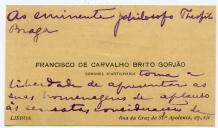 Ao eminente philosopho Theophilo
Braga
FRANCISCO DE CARVALHO BRITO GORJÃO
CORONEL D'ARTILHARIA
toma a
liberdade de apresentar as
suas homenagens de aplauso
ás
LISBOA
Rua da Cruz de St.ª Apolonia,